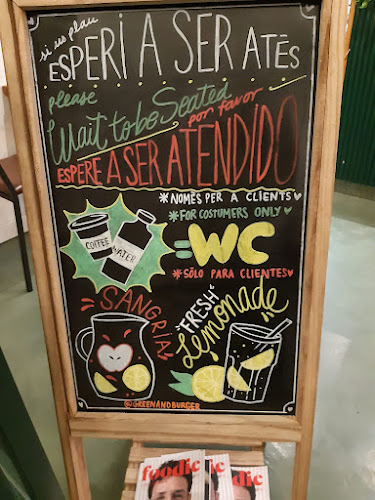 si us plau
ESPERI A SER ATÈS
please
Wait to be Seated
por favor
ESPERE A SER ATENDIDO
* NOMÉS PER A CLIENTS
* FOR COSTUMERS ONLY
COFFEE
WATER
= WC
* SÓLO PARA CLIENTES
SANGRIA
FRESH
Lemonade
@GREENANDBURGER
foodie